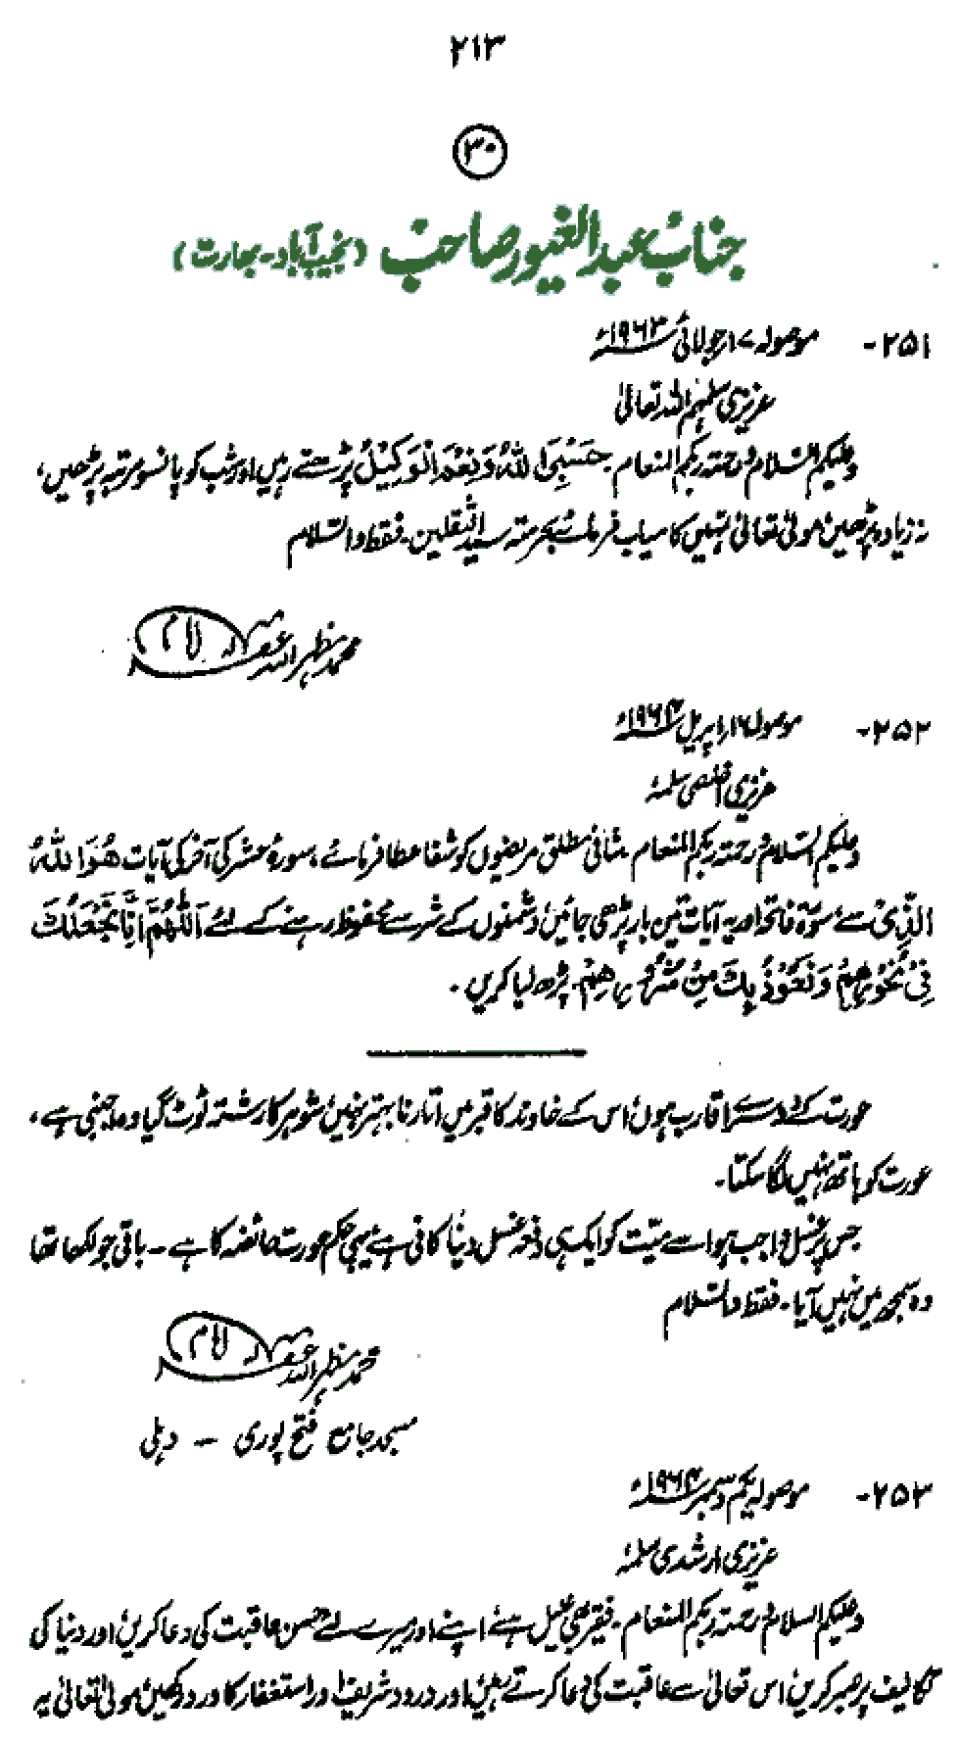 ۲۱۳
۳۰
جناب عبد الغیور صاحب (نجیب آباد۔ بھارت)
۲۵۱- موصولہ ۱۷ جولائی ۱۹۶۳ء
عزیزی سلمہم اللہ تعالیٰ
وعلیکم السلام ورحمتہ ربکم المنعام۔ حَسْبِیَ اللہُ وَنِعْمَ الْوَکِیْلُ پڑھتے رہیں اور شب کو پانسو مرتبہ پڑھیں،
نہ زیادہ پڑھیں، مولیٰ تعالیٰ تمہیں کامیاب فرمائے بحرمتہ سید الثقلین۔ فقط والسلام
محمد مظہر اللہ غفرلہ الامام
۲۵۲- موصولہ ۱۶ اپریل ۱۹۶۴ء
عزیزی اخلصی سلمہٗ
وعلیکم السلام ورحمتہ ربکم المنعام شافی مطلق مریضوں کو شفا عطا فرمائے، سورۂ حشر کی آخر کی آیات ھُوَ اللہُ
الَّذِیْ سے سورۃ فاتحہ اور یہ آیات تین بار پڑھی جائیں، دشمنوں کے شر سے محفوظ رہنے کے لئے اَللّٰھُمَّ اِنَّا نَجْعَلُكَ
فِیْ نُحُوْرِھِمْ وَنَعُوْذُ بِكَ مِنْ شُرُوْرِھِمْ۔ پڑھ لیا کریں۔
عورت کے دوسرے اقارب ہوں، اس کے خاوند کا قبر میں اتارنا بہتر نہیں، شوہر کا رشتہ ٹوٹ گیا وہ اجنبی ہے،
عورت کو ہاتھ نہیں لگا سکتا۔
جس پر غسل واجب ہوا سے میّت کو ایک ہی دفعہ غسل دینا کافی ہے، یہی حکم عورت حائضہ کا ہے۔ باقی جو لکھا تھا
وہ سمجھ میں نہیں آیا۔ فقط والسلام
محمد مظہر اللہ غفرلہ الامام
مسجد جامع فتح پوری – دہلی
۲۵۳- موصولہ یکم دسمبر ۱۹۶۴ء
عزیزی ارشدی سلمہٗ
وعلیکم السلام ورحمتہ ربکم المنعام۔ فقیر بھی علیل ہے، اپنے اور میرے لئے حسن عاقبت کی دعا کریں، اور دنیا کی
تکالیف پر صبر کریں، اس تعالیٰ سے عاقبت کی دعا کرتے رہیں، اور درود شریف اور استغفار کا ورد رکھیں، مولیٰ تعالیٰ یہ